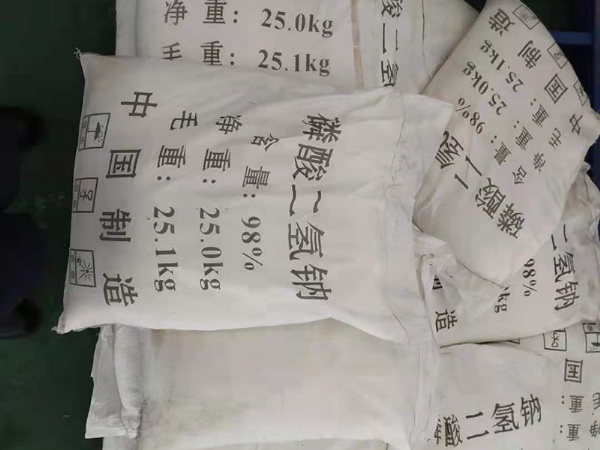 磷酸二氢钠
含量：98%
净重：25.0kg
毛重：25.1kg
中国制造
净重：25.0kg
毛重：25.1kg
酸二氢
磷酸二氢
含量：98%
净重：25.0kg
毛重：25.1kg
中国制造
二氢钠
98%
0kg
造
酸二氢钠
国
净重：
毛重：